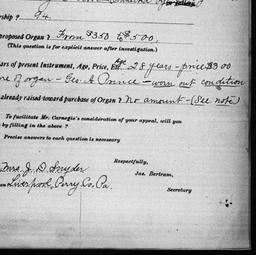 rship ? 94.
proposed Organ ? From $350 to $500.
(This question is for explicit answer after investigation.)
ars of present Instrument, Age, Price, Age 28 years - price $300
of organ - Geo. A. Prince - worn out condition
already raised toward purchase of Organ ? No amount - (See note)
To facilitate Mr. Carnegie's consideration of your appeal, will you
by filling in the above ?
Precise answers to each question is necessary
Respectfully,
Mrs. J. D. Snyder
Jas. Bertram,
Liverpool, Perry Co. Pa.
Secretary